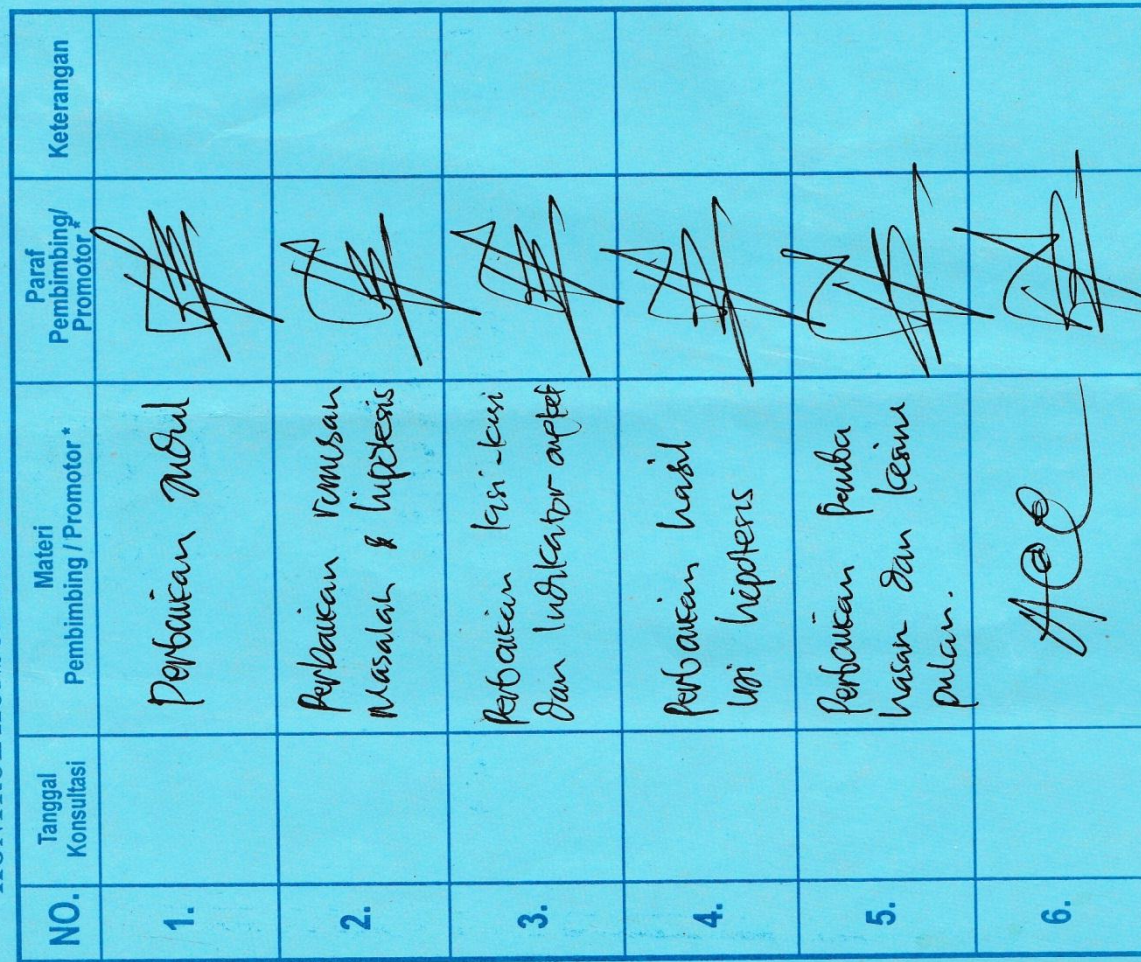 NO.
Tanggal
Konsultasi
Materi
Pembimbing / Promotor *
Paraf
Pembimbing/
Promotor *
Keterangan
1.
Perbaikan Judul
2.
Perbaikan rumusan
Masalah & hipotesis
3.
Perbaikan kisi-kisi
dan Indikator angket
4.
Perbaikan hasil
uji hipotesis
5.
Perbaikan Pemba
hasan dan kesim
pulan.
6.